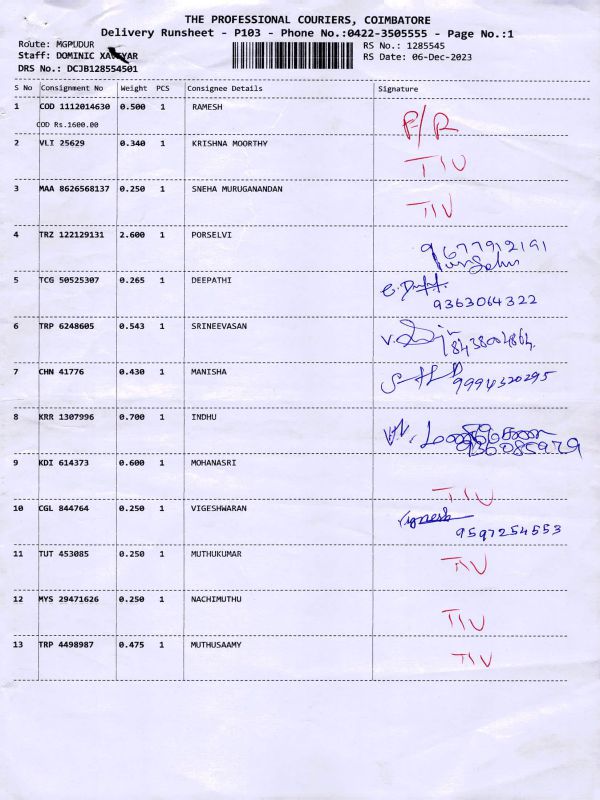 THE PROFESSIONAL COURIERS, COIMBATORE
Delivery Runsheet - P103 - Phone No.:0422-3505555 - Page No.:1
Route: MGPUDUR RS No.: 1285545
Staff: DOMINIC XAVEYAR RS Date: 06-Dec-2023
DRS No.: DCJB128554501
S No Consignment No Weight PCS Consignee Details Signature
1 COD 1112014630 0.500 1 RAMESH F/R
COD Rs.1600.00
2 VLI 25629 0.340 1 KRISHNA MOORTHY TIV
3 MAA 8626568137 0.250 1 SNEHA MURUGANANDAN TIV
4 TRZ 122129131 2.600 1 PORSELVI 9677912191
5 TCG 50525307 0.265 1 DEEPATHI
9363064322
6 TRP 6248605 0.543 1 SRINEEVASAN 8438004864
7 CHN 41776 0.430 1 MANISHA 9994320295
8 KRR 1307996 0.700 1 INDHU
9 KDI 614373 0.600 1 MOHANASRI TIV
10 CGL 844764 0.250 1 VIGESHWARAN Vignesh
9597254553
11 TUT 453085 0.250 1 MUTHUKUMAR TIV
12 MYS 29471626 0.250 1 NACHIMUTHU TIV
13 TRP 4498987 0.475 1 MUTHUSAAMY TIV